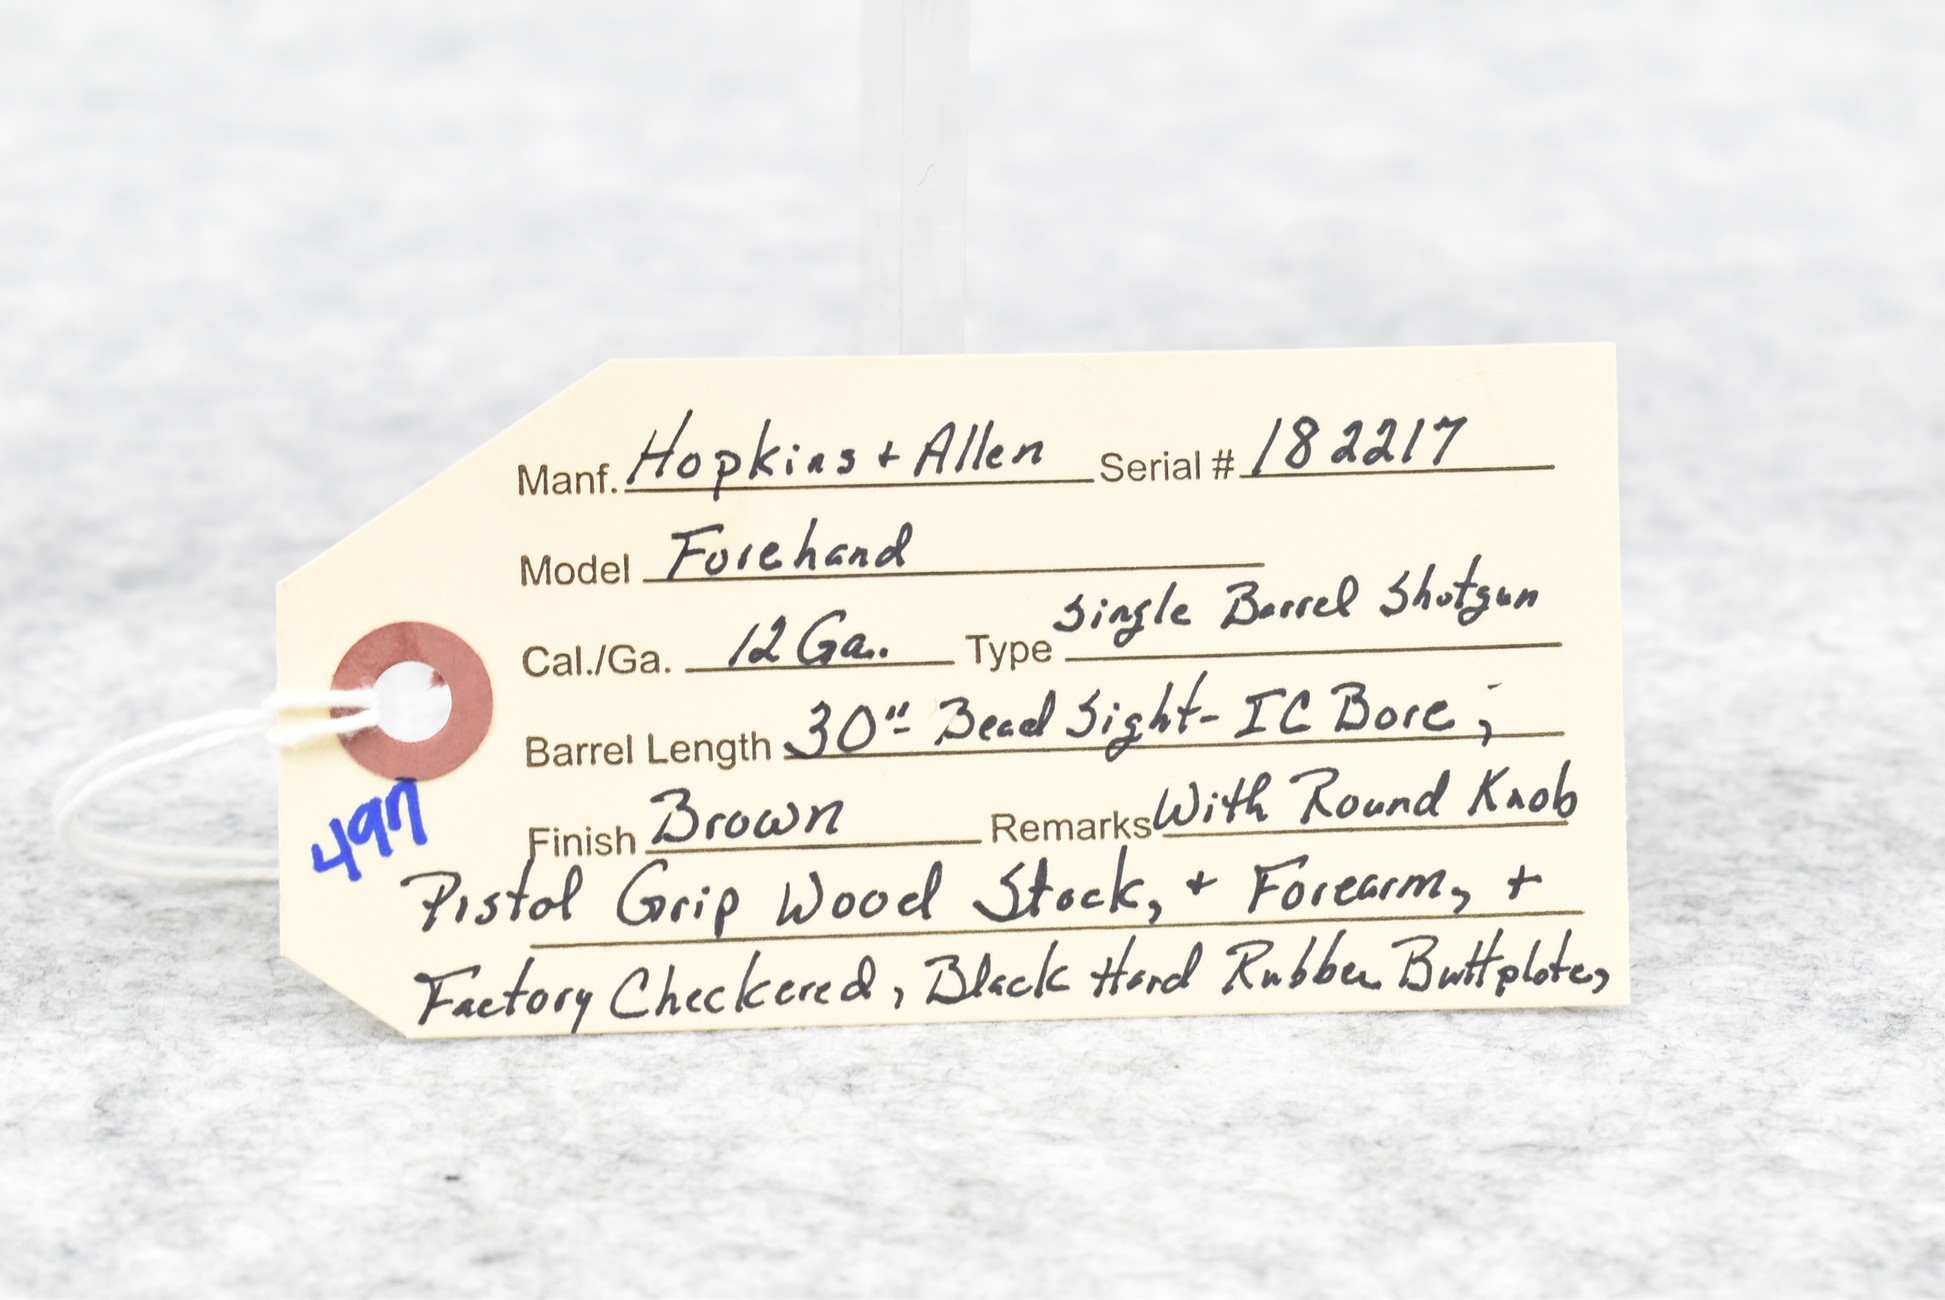 Manf. Hopkins + Allen Serial # 182217
Model Forehand
Cal./Ga. 12 Ga. Type Single Barrel Shotgun
Barrel Length 30"- Bead Sight- IC Bore;
Finish Brown Remarks With Round Knob
Pistol Grip Wood Stock, + Forearm, +
Factory Checkered, Black Hard Rubber Buttplate,
497